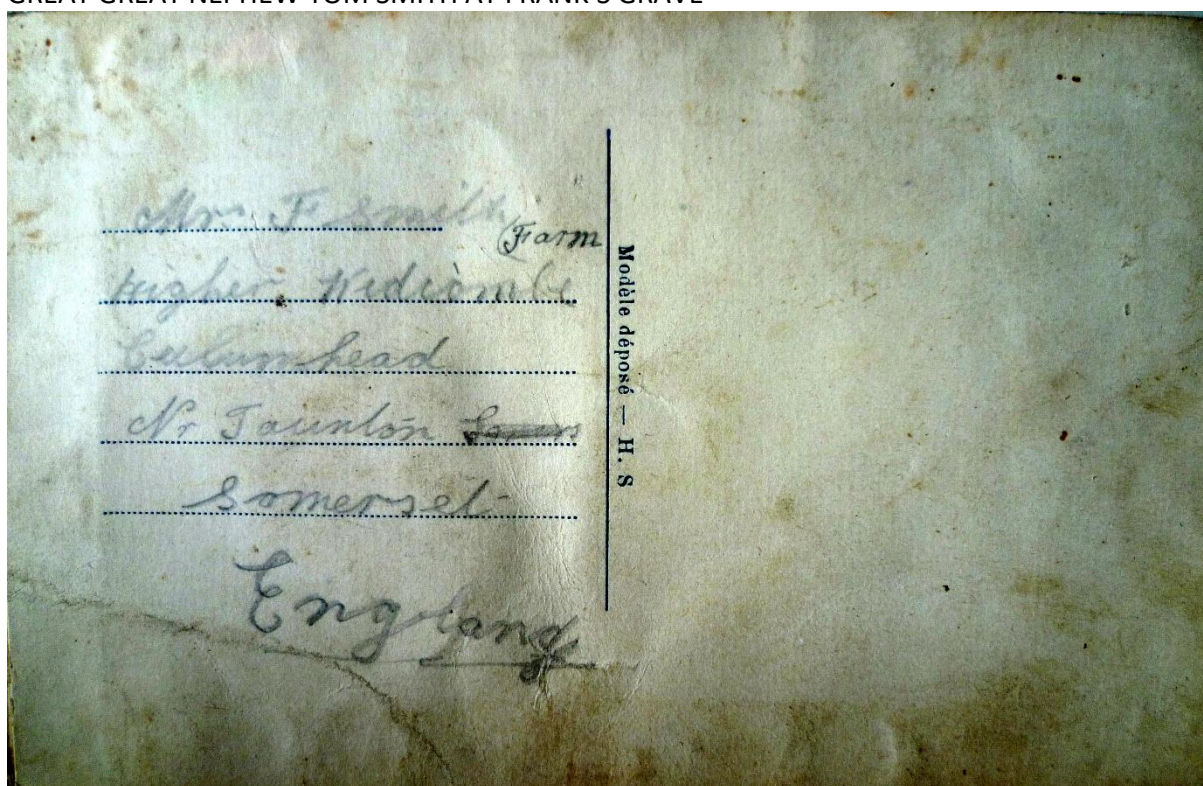 GREAT GREAT NEPHEW TOM SMITH AT FRANK'S GRAVE
Mrs F Smith
(Farm
Higher Wediombe
Culumhead
Nr Taunton Somers
Somerset
England
Modèle déposé — H. S